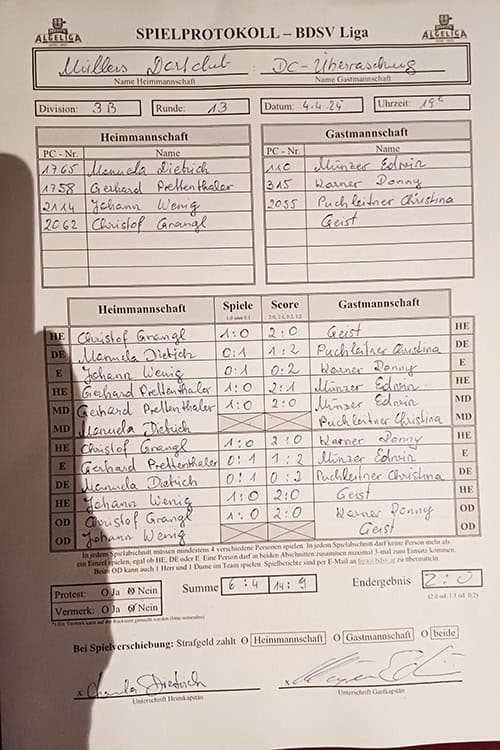 ALGELIGA SPIELPROTOKOLL – BDSV Liga ALGELIGA
Müllers Dartclub : DC-Überraschung
Name Heimmannschaft Name Gastmannschaft
Division: 3B Runde: 13 Datum: 4.4.24 Uhrzeit: 19
Heimmannschaft Gastmannschaft
PC - Nr. Name PC - Nr. Name
1765 Manuela Dietrich 110 Münzer Edwin
1758 Gerhard Prettenthaler 315 Karner Donny
2114 Johann Wenig 2055 Puchleitner Christina
2062 Christof Grangl Geist
Heimmannschaft Spiele Score Gastmannschaft
1:0 oder 0:1 2:0, 2:1, 0:2, 1:2
HE Christof Grangl 1:0 2:0 Geist HE
DE Manuela Dietrich 0:1 1:2 Puchleitner Christina DE
E Johann Wenig 0:1 0:2 Karner Donny E
HE Gerhard Prettenthaler 1:0 2:1 Münzer Edwin HE
MD Gerhard Prettenthaler 1:0 2:0 Münzer Edwin MD
MD Manuela Dietrich Puchleitner Christina MD
HE Christof Grangl 1:0 2:0 Karner Donny HE
E Gerhard Prettenthaler 0:1 1:2 Münzer Edwin E
DE Manuela Dietrich 0:1 0:2 Puchleitner Christina DE
HE Johann Wenig 1:0 2:0 Geist HE
OD Christof Grangl 1:0 2:0 Karner Donny OD
OD Johann Wenig Geist OD
In jedem Spielabschnitt müssen mindestens 4 verschiedene Personen spielen. In jedem Spielabschnitt darf keine Person mehr als
ein Einzel spielen, egal ob HE, DE oder E. Eine Person darf in beiden Abschnitten zusammen maximal 3-mal zum Einsatz kommen.
Beim OD kann auch 1 Herr und 1 Dame im Team spielen. Spielberichte sind per E-Mail an liga@bdsv.at zu übermitteln.
Protest: O Ja O Nein Summe 6:4 14:9 Endergebnis 2:0
Vermerk: O Ja O Nein (2:0 od. 1:1 od. 0:2)
Bei Spielverschiebung: Strafgeld zahlt O Heimmannschaft O Gastmannschaft O beide
x x
Unterschrift Heimkapitän Unterschrift Gastkapitän